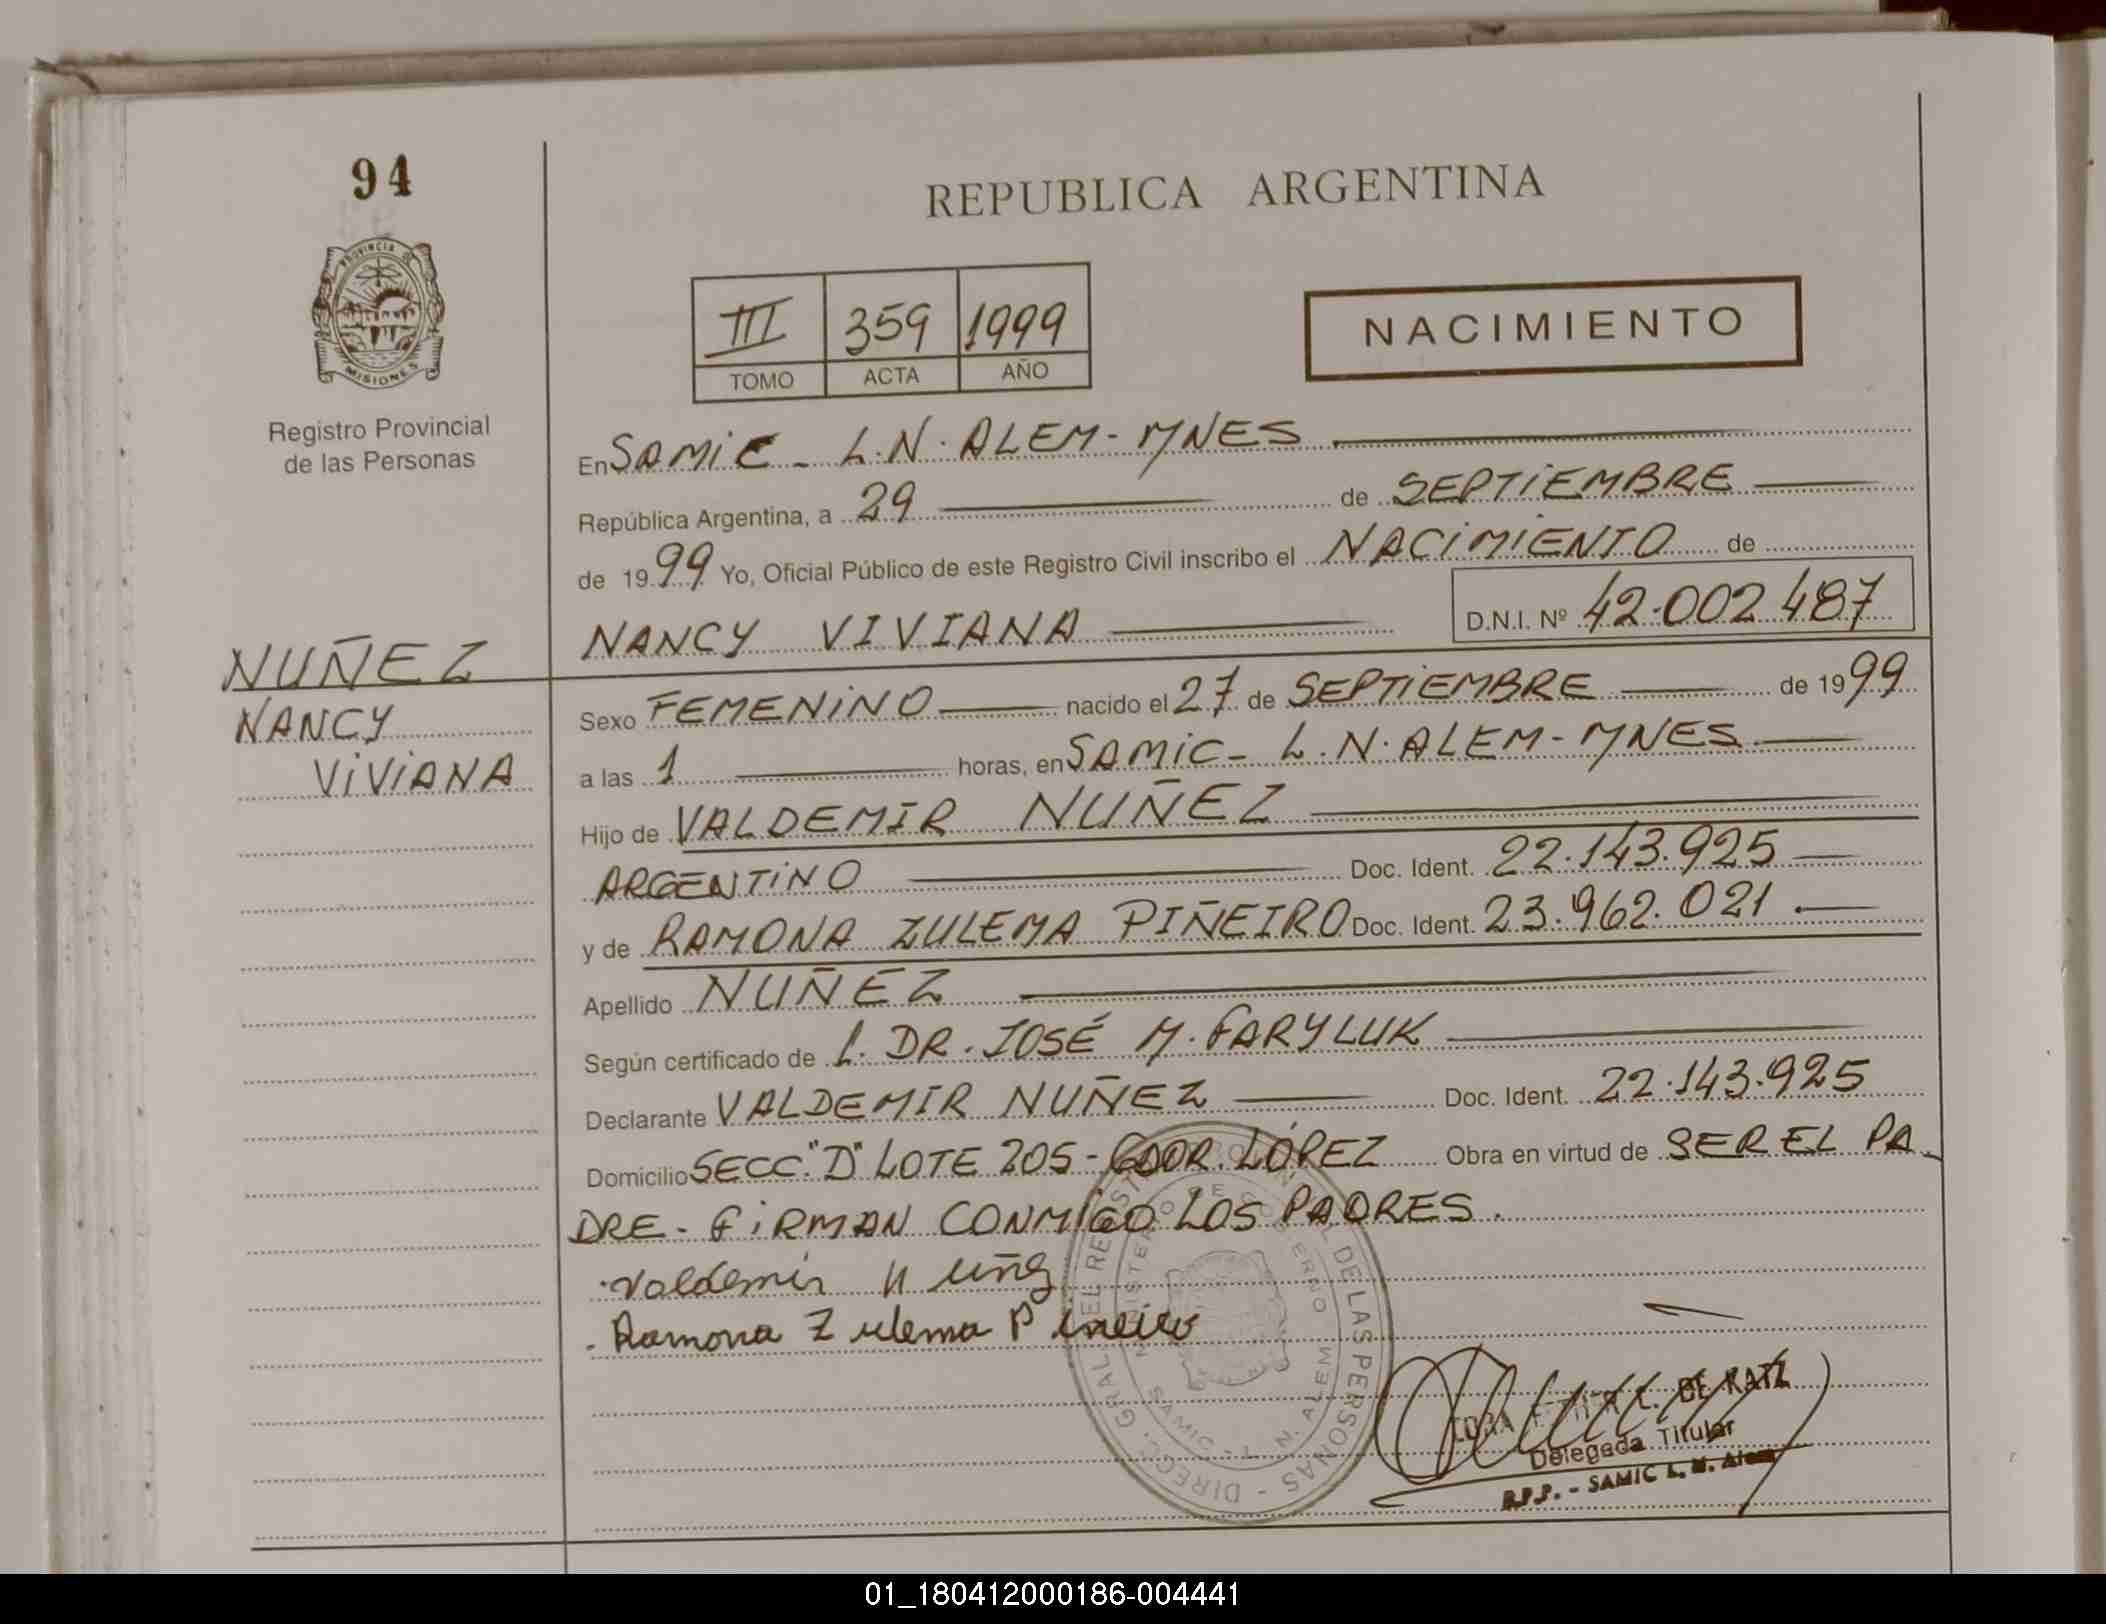 94
REPUBLICA ARGENTINA
PROVINCIA DE MISIONES
III 359 1999
TOMO ACTA AÑO
NACIMIENTO
Registro Provincial
de las Personas
En SAMIC - L.N. ALEM - MNES
República Argentina, a 29 de SEPTIEMBRE
de 1999 Yo, Oficial Público de este Registro Civil inscribo el NACIMIENTO de
NANCY VIVIANA D.N.I. Nº 42.002.487
NUÑEZ
NANCY
VIVIANA
Sexo FEMENINO nacido el 27 de SEPTIEMBRE de 1999
a las 1 horas, en SAMIC - L.N. ALEM - MNES
Hijo de VALDEMIR NUÑEZ
ARGENTINO Doc. Ident. 22.143.925
y de RAMONA ZULEMA PIÑEIRO Doc. Ident. 23.962.021
Apellido NUÑEZ
Según certificado de DR. JOSÉ M. FARYLUK
Declarante VALDEMIR NUÑEZ Doc. Ident. 22.143.925
Domicilio SECC. "D" LOTE 205 - GDOR. LÓPEZ Obra en virtud de SER EL PA
DRE - FIRMAN CONMIGO LOS PADRES.
Valdemir Nuñez
Ramona Zulema Piñeiro
DIRECC. GRAL. DEL REGISTRO PROVINCIAL DE LAS PERSONAS
MINISTERIO DE GOBIERNO
SAMIC - L. N. ALEM
DE KATZ
Delegada Titular
R.P.P. - SAMIC L. N. Alem
01_180412000186-004441